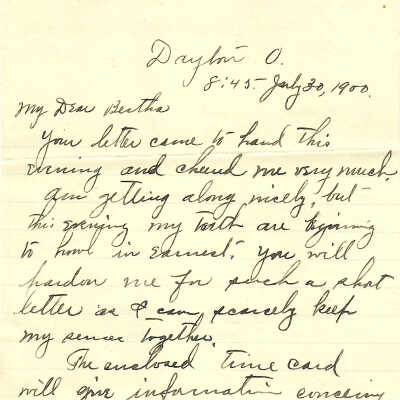 Dayton O.
8:45. July 30, 1900.
My Dear Bertha
Your letter came to hand this
evening and cheered me very much.
am getting along nicely, but
this evening my teeth are beginning
to howl in earnest. You will
pardon me for such a short
letter as I can scarcely keep
my senses together.
The enclosed time card
will give information concerning